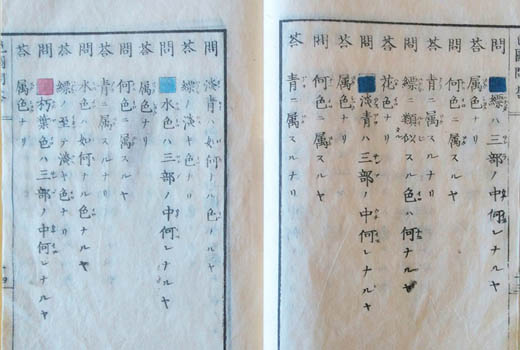 問 縹ハ三部ノ中何レナルヤ
荅 属色ナリ
問 何色ニ属スルヤ
荅 青ニ属スルナリ
問 縹ニ類似スル色ハ何ナルヤ
荅 花色ナリ
問 淡青ハ三部ノ中何レナルヤ
荅 属色ナリ
問 何色ニ属スルヤ
荅 青ニ属スルナリ
問 淡青ハ如何ナル色ナルヤ
荅 縹ノ淡キ色ナリ
問 水色ハ三部ノ中何レナルヤ
荅 属色ナリ
問 何色ニ属スルヤ
荅 青ニ属スルナリ
問 水色ハ如何ナル色ナルヤ
荅 縹ノ至テ淡キ色ナリ
問 朽葉色ハ三部ノ中何レナルヤ
荅 属色ナリ